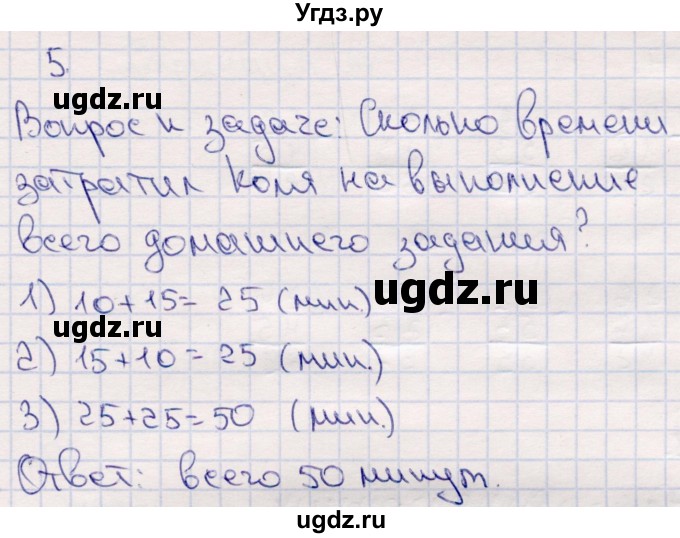 Угдз.ру
5.
ugdz.ru
Вопрос к задаче: Сколько времени
затратил Коля на выполнение
всего домашнего задания?
1) 10+15= 25 (мин.)
ugdz.ru
ugdz.ru
2) 15+10= 25 (мин.)
3) 25+25=50 (мин.)
Ответ: всего 50 минут.
ugdz.ru
ugdz.ru